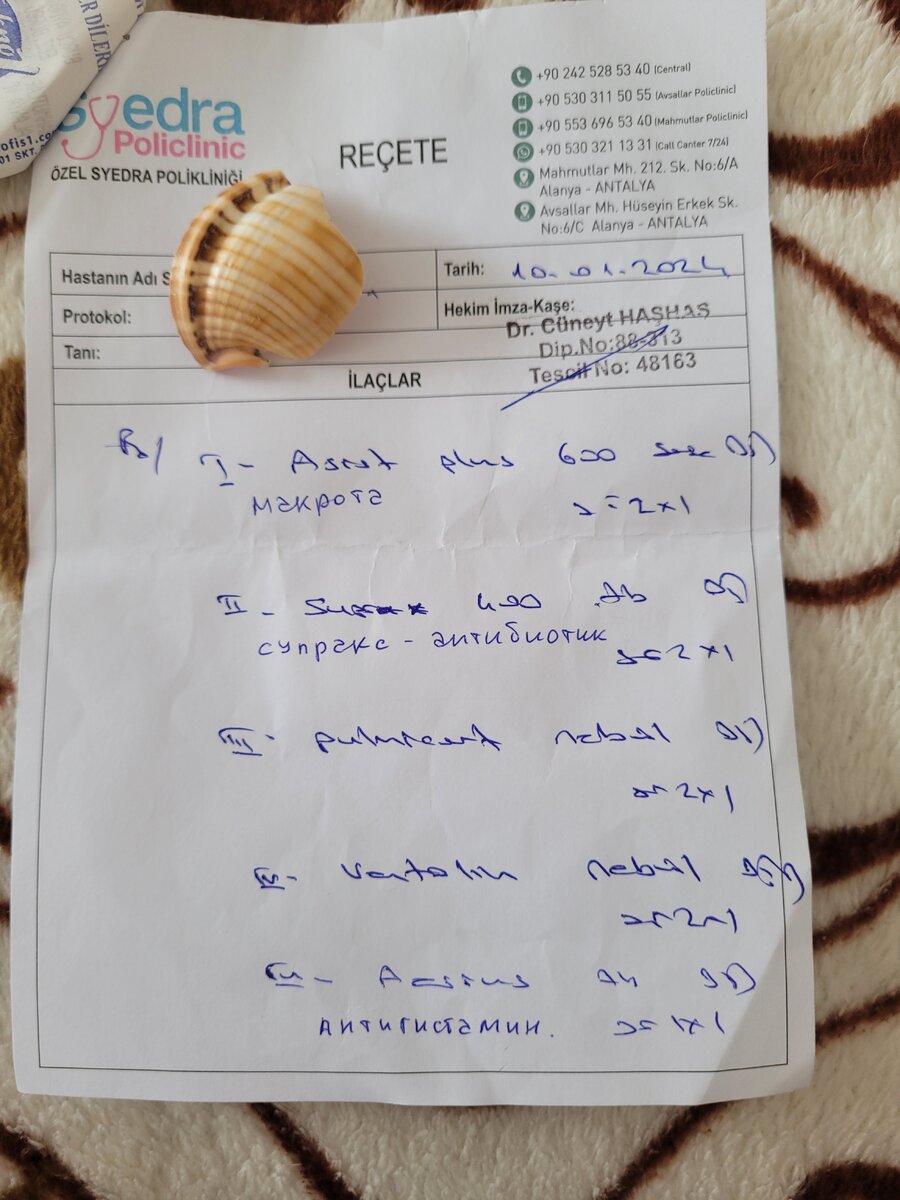 Syedra
Policlinic
ÖZEL SYEDRA POLİKLİNİĞİ
REÇETE
+90 242 528 53 40 (Central)
+90 530 311 50 55 (Avsallar Policlinic)
+90 553 696 53 40 (Mahmutlar Policlinic)
+90 530 321 13 31 (Call Canter 7/24)
Mahmutlar Mh. 212. Sk. No:6/A
Alanya - ANTALYA
Avsallar Mh. Hüseyin Erkek Sk.
No:6/C Alanya - ANTALYA
Hastanın Adı S
Tarih: 10.01.2024
Protokol:
Hekim İmza-Kaşe:
Dr. Cüneyt HAŞHAŞ
Dip.No:88-313
Tescil No: 48163
Tanı:
İLAÇLAR
I - Asist plus 600
макрота
2x1
II - Suprax 400
супракс - антибиотик
2x1
III - pulmicort nebul
2x1
IV - Ventolin nebul
2x1
Aerius
антигистамин.
1x1